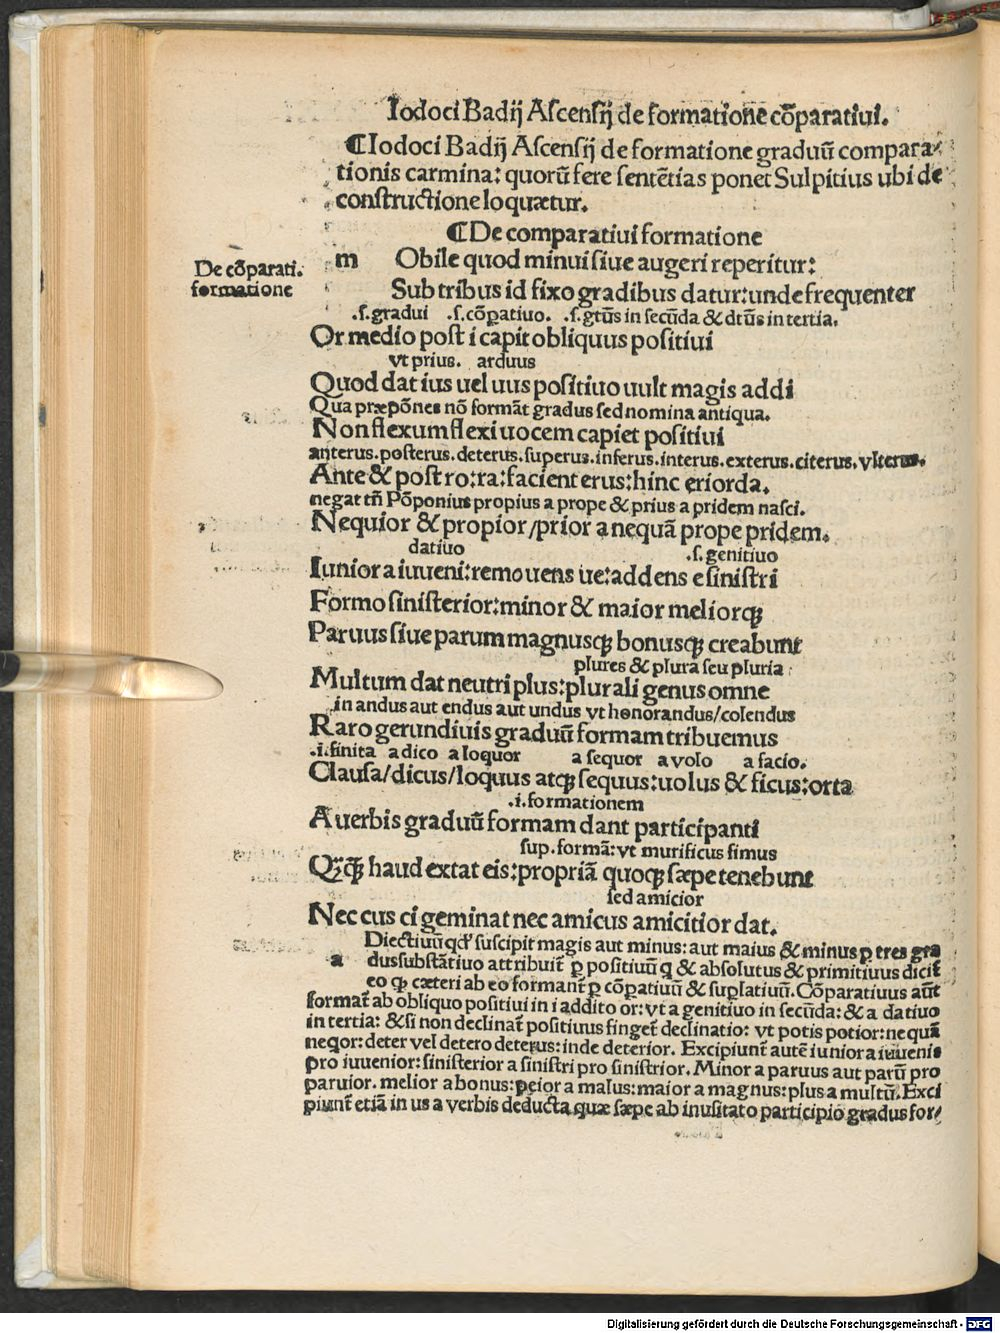 Iodoci Badij Ascensij de formatione cōparatiui.
¶Iodoci Badij Ascensij de formatione graduū compara⸗
tionis carmina: quorū fere sentētias ponet Sulpitius ubi de
constructione loquætur.
¶De comparatiui formatione
De cōparati.
formatione
m Obile quod minui siue augeri reperitur:
Sub tribus id fixo gradibus datur: unde frequenter
.s. gradui .s. cōꝑatiuo. .s. gtūs in secūda & dtūs in tertia.
Or medio post i capit obliquus positiui
vt prius. arduus
Quod dat ius uel uus positiuo uult magis addi
Qua præpōnes nō formāt gradus sed nomina antiqua.
Non flexum flexi uocem capiet positiui
anterus. posterus. deterus. superus. inferus. interus. exterus. citerus. vlterus.
Ante & post ro: ra: facient erus: hinc eriorda.
negat tñ Pōponius propius a prope & prius a pridem nasci.
Nequior & propior/prior a nequā prope pridem.
datiuo .s. genitiuo
Iunior a iuueni: remouens ue: addens e sinistri
Formo sinisterior: minor & maior meliorꝗ
Paruus siue parum magnusꝗ bonusꝗ creabunt
plures & plura seu pluria
Multum dat neutri plus: plurali genus omne
in andus aut endus aut undus vt honorandus/colendus
Raro gerundiuis graduū formam tribuemus
.i. finita a dico a loquor a sequor a volo a facio.
Clausa/dicus/loquus atꝗ sequus: uolus & ficus: orta
.i. formationem
A uerbis graduū formam dant participanti
sup. formā: vt murificus fimus
haud extat eis: propriā quoꝗ sæpe tenebunt
sed amicior
Nec cus ci geminat nec amicus amicitior dat.
a Diectiuū qđ suscipit magis aut minus: aut maius & minus ꝑ tres gra
dus substātiuo attribuit̄ ꝑ positiuū q & absolutus & primitiuus dicit̄
eo ꝙ cæteri ab eo formant̄ ꝑ cōꝑatiuū & suꝑlatiuū. Cōparatiuus aūt
format̄ ab obliquo positiui in i addito or: vt a genitiuo in secūda: & a datiuo
in tertia: & si non declinat̄ positiuus finget̄ declinatio: vt potis potior: nequā
neqor: deter vel detero deterus: inde deterior. Excipiunt̄ autē iunior a iuuenis
pro iuuenior: sinisterior a sinistri pro sinistrior. Minor a paruus aut parū pro
paruior. melior a bonus: peior a malus: maior a magnus: plus a multū. Exci
piunt̄ etiā in us a verbis deducta quæ sæpe ab inusitato participio gradus for⸗
Digitalisierung gefördert durch die Deutsche Forschungsgemeinschaft - DFG